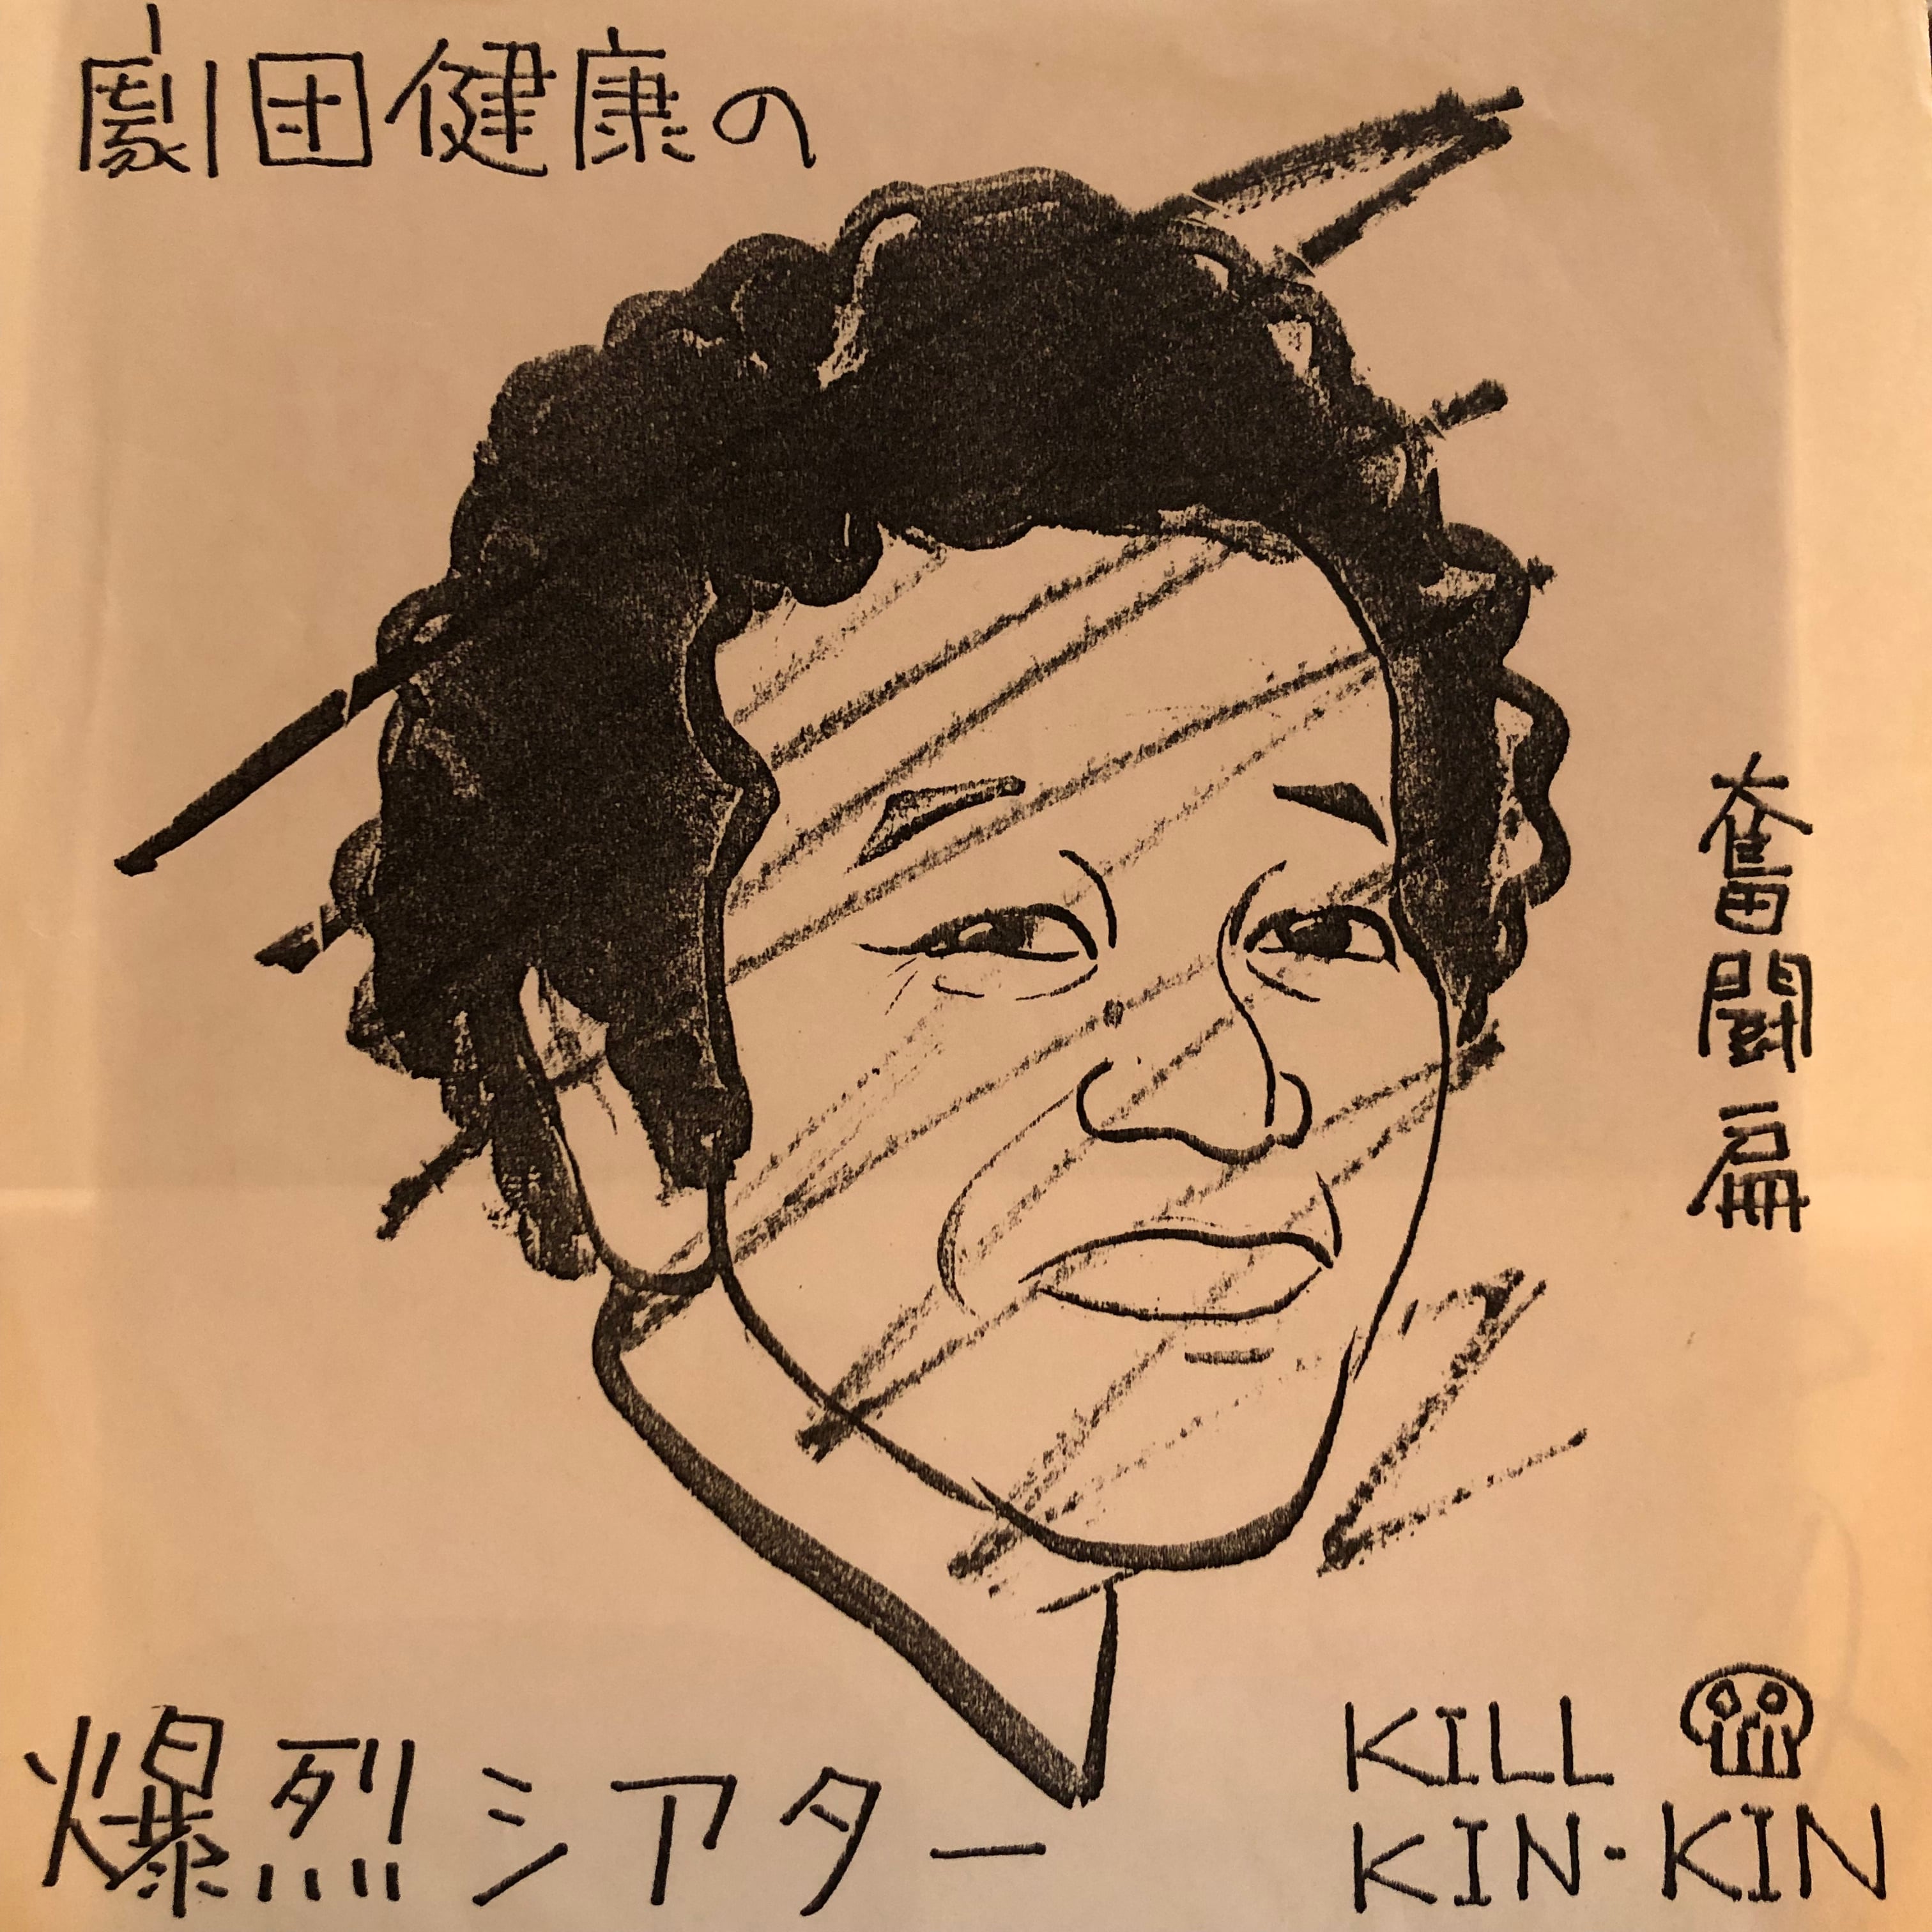 劇団健康の
奮闘篇
爆烈シアター
KILL
KIN・KIN